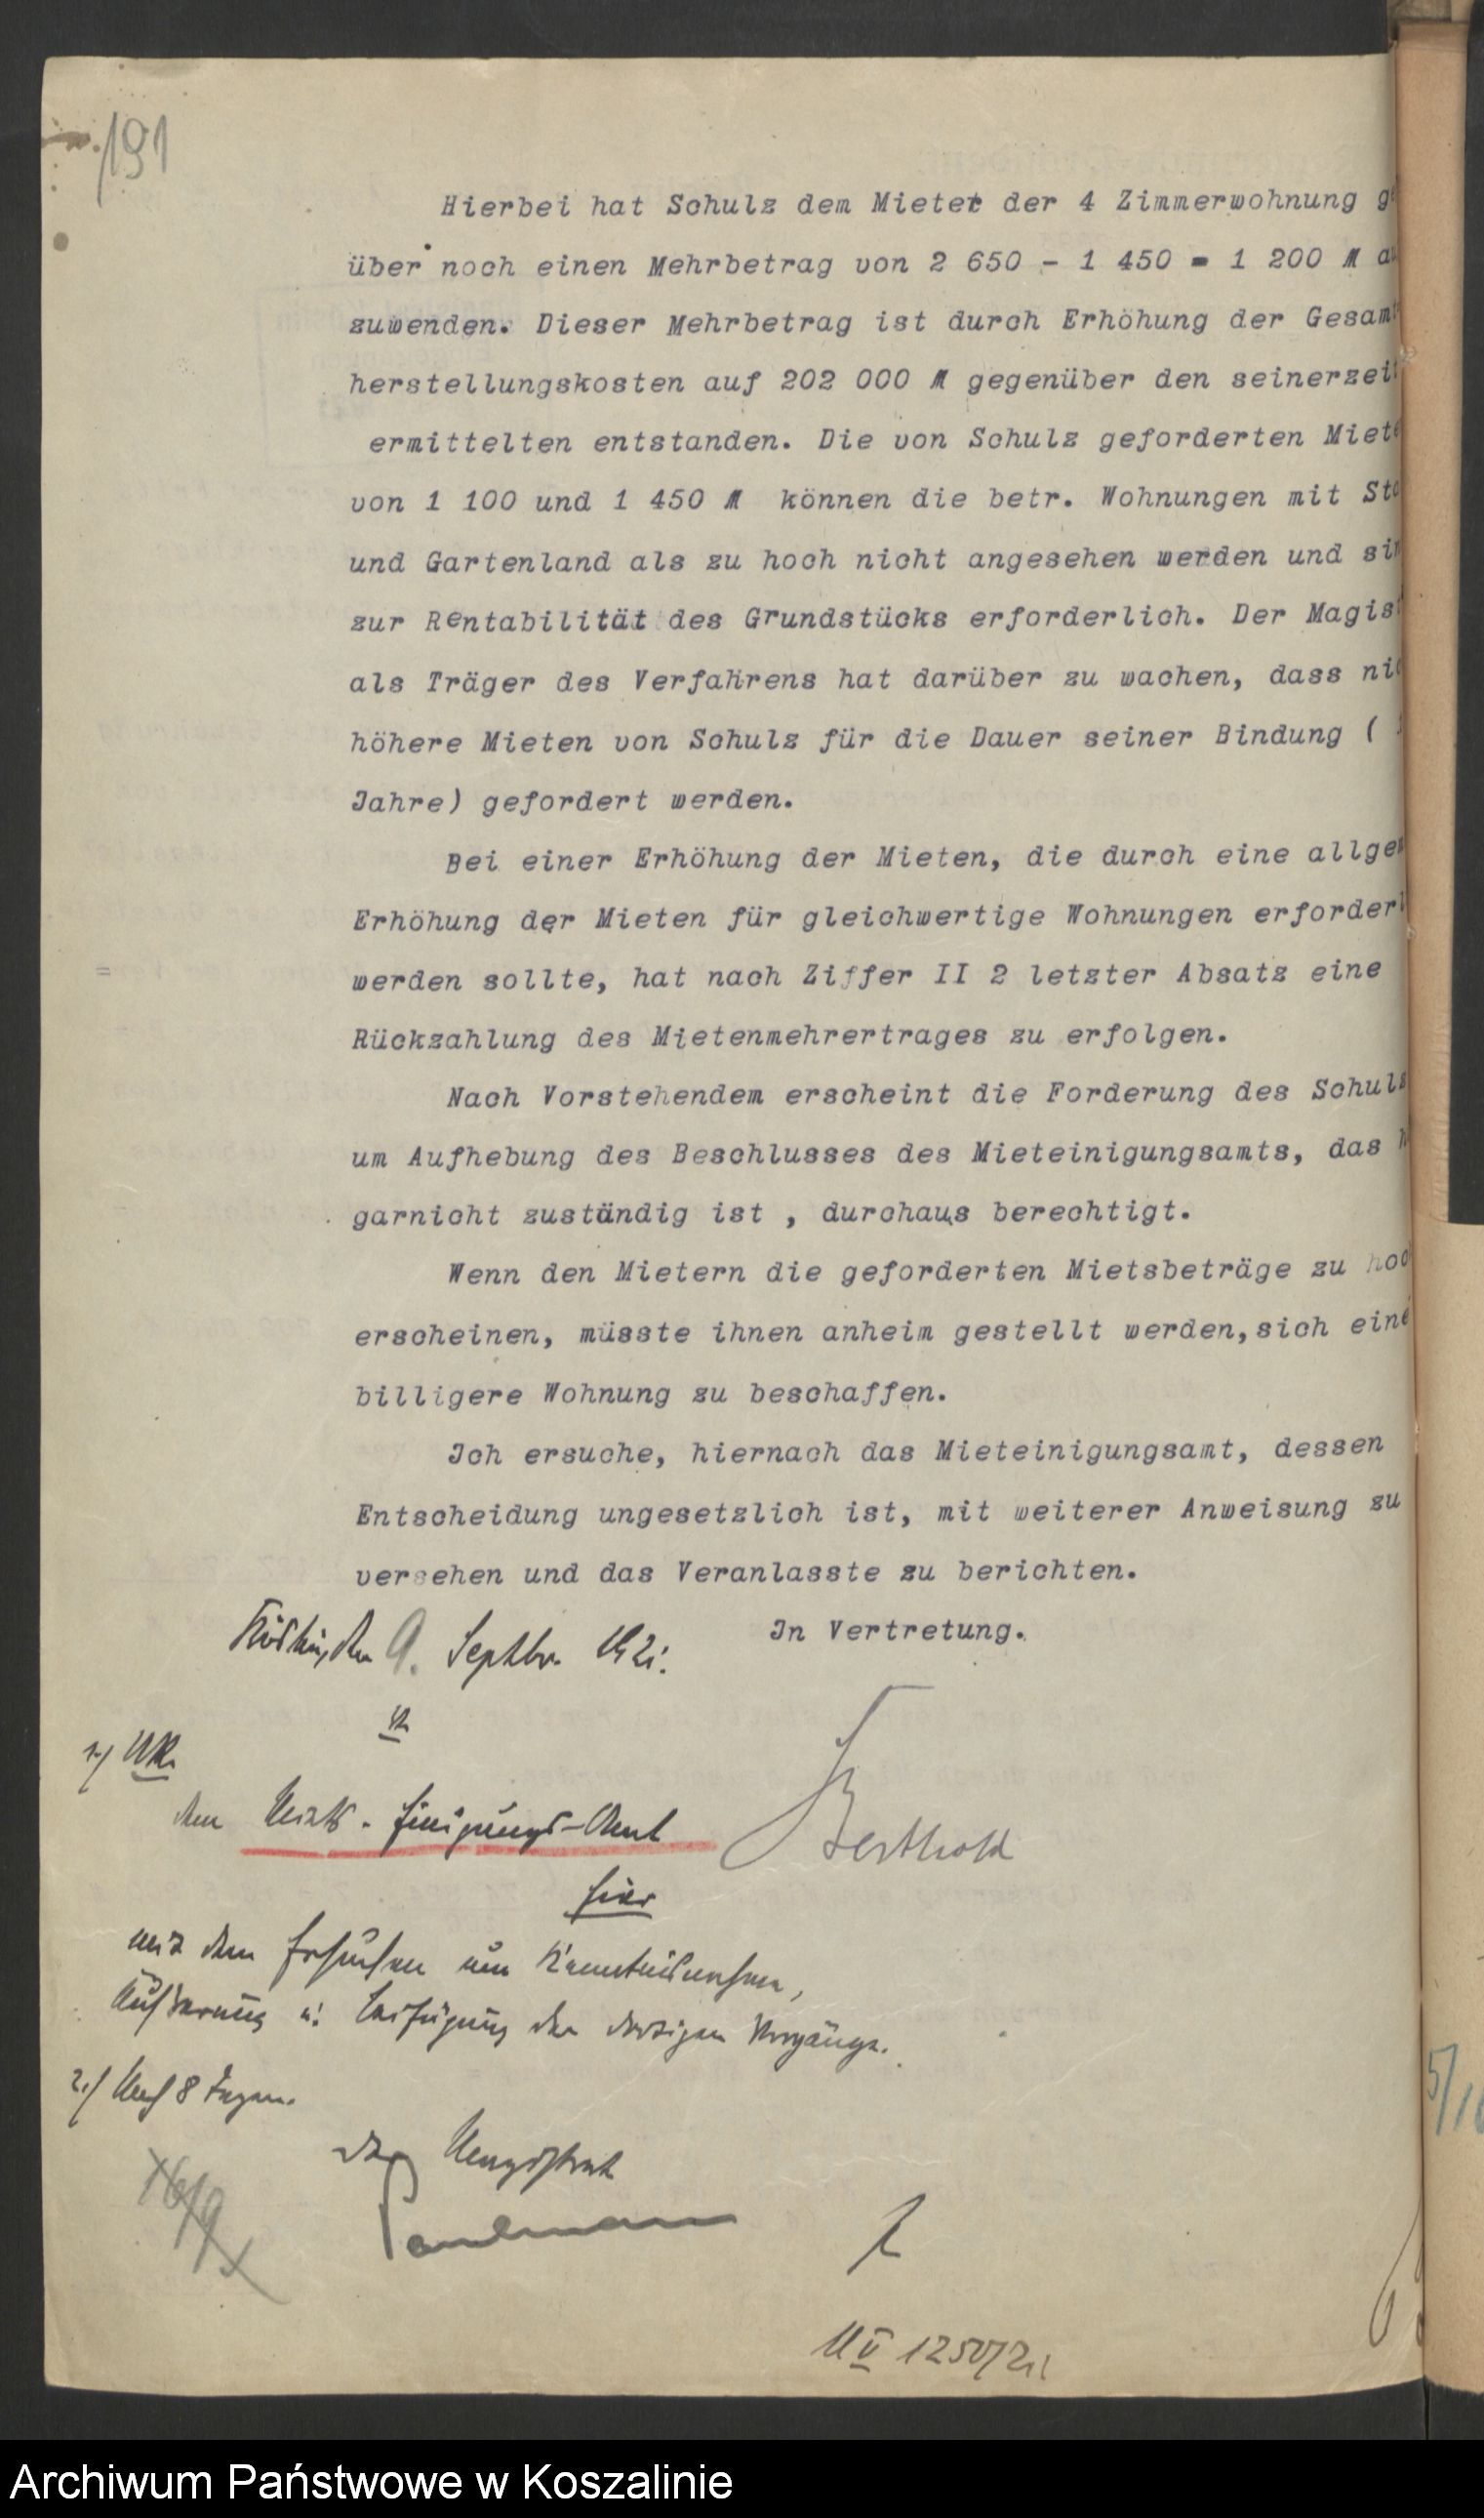 191
Hierbei hat Schulz dem Mieter der 4 Zimmerwohnung g
über noch einen Mehrbetrag von 2 650 - 1 450 = 1 200 M a
zuwenden. Dieser Mehrbetrag ist durch Erhöhung der Gesam
herstellungskosten auf 202 000 M gegenüber den seinerzeit
ermittelten entstanden. Die von Schulz geforderten Miete
von 1 100 und 1 450 M können die betr. Wohnungen mit Sta
und Gartenland als zu hoch nicht angesehen werden und sin
zur Rentabilität des Grundstücks erforderlich. Der Magist
als Träger des Verfahrens hat darüber zu wachen, dass nic
höhere Mieten von Schulz für die Dauer seiner Bindung (
Jahre) gefordert werden.
Bei einer Erhöhung der Mieten, die durch eine allgem
Erhöhung der Mieten für gleichwertige Wohnungen erforderl
werden sollte, hat nach Ziffer II 2 letzter Absatz eine
Rückzahlung des Mietenmehrertrages zu erfolgen.
Nach Vorstehendem erscheint die Forderung des Schulz
um Aufhebung des Beschlusses des Mieteinigungsamts, das h
garnicht zuständig ist , durchaus berechtigt.
Wenn den Mietern die geforderten Mietsbeträge zu hoc
erscheinen, müsste ihnen anheim gestellt werden, sich eine
billigere Wohnung zu beschaffen.
Ich ersuche, hiernach das Mieteinigungsamt, dessen
Entscheidung ungesetzlich ist, mit weiterer Anweisung zu
versehen und das Veranlasste zu berichten.
In Vertretung.
Köslin, den 9. Septbr. 1921.
1.) UR.
dem Miets-Einigungs-Amt
Berthold
hier
mit dem Ersuchen um Kenntnisnahme,
Äußerung u. Beifügung der dortigen Vorgänge.
2.) Nach 8 Tagen.
Der Magistrat
16/9
5/10
1250/21
Archiwum Państwowe w Koszalinie